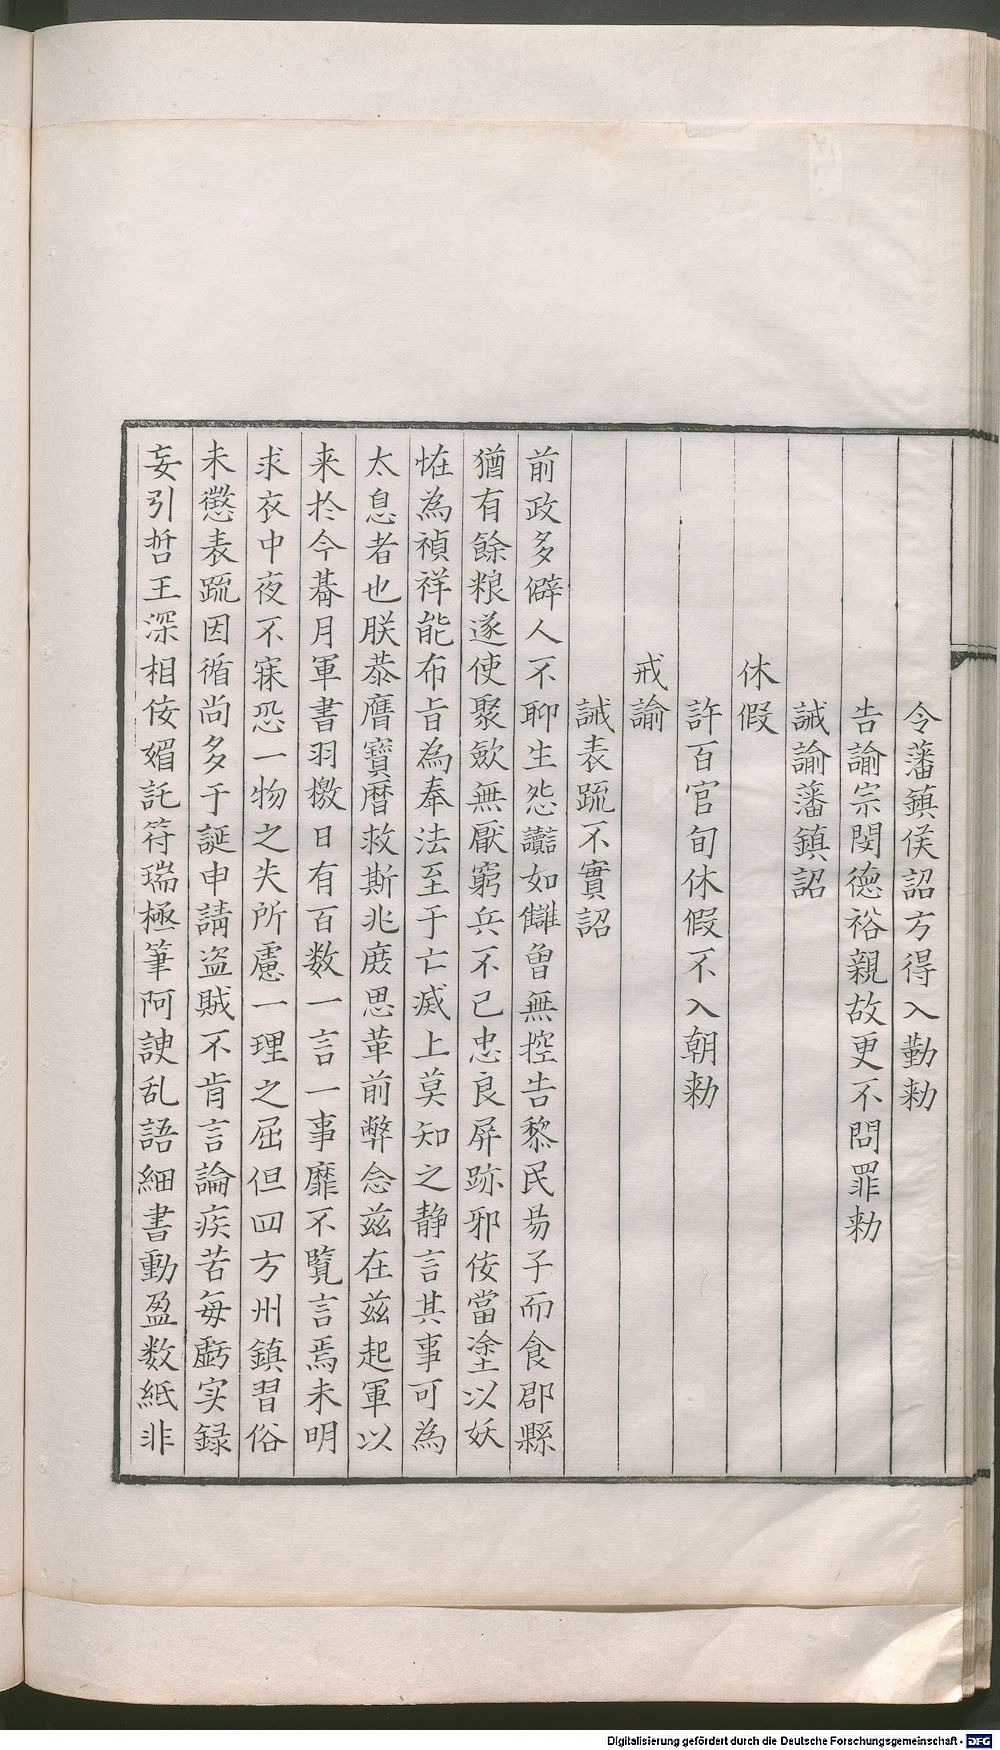 令藩鎮侯詔方得入勤勑
告諭宗閔德裕親故更不問罪勑
誡諭藩鎮詔
休假
許百官旬休假不入朝勑
戒諭
誡表疏不實詔
前政多僻人不聊生怨讟如讎曽無控告黎民易子而食郡縣
猶有餘粮遂使聚斂無厭窮兵不已忠良屏跡邪佞當塗以妖
恠為禎祥能布旨為奉法至于亡滅上莫知之静言其事可為
太息者也朕恭膺寶暦救斯兆庶思革前弊念兹在兹起軍以
来於今朞月軍書羽檄日有百数一言一事靡不覧言焉未明
求衣中夜不寐恐一物之失所慮一理之屈但四方州鎮習俗
未懲表疏因循尚多于誕申請盗賊不肯言論疾苦每虧实録
妄引哲王深相佞媚託符瑞極筆阿諛乱語細書動盈数紙非
Digitalisierung gefördert durch die Deutsche Forschungsgemeinschaft - DFG